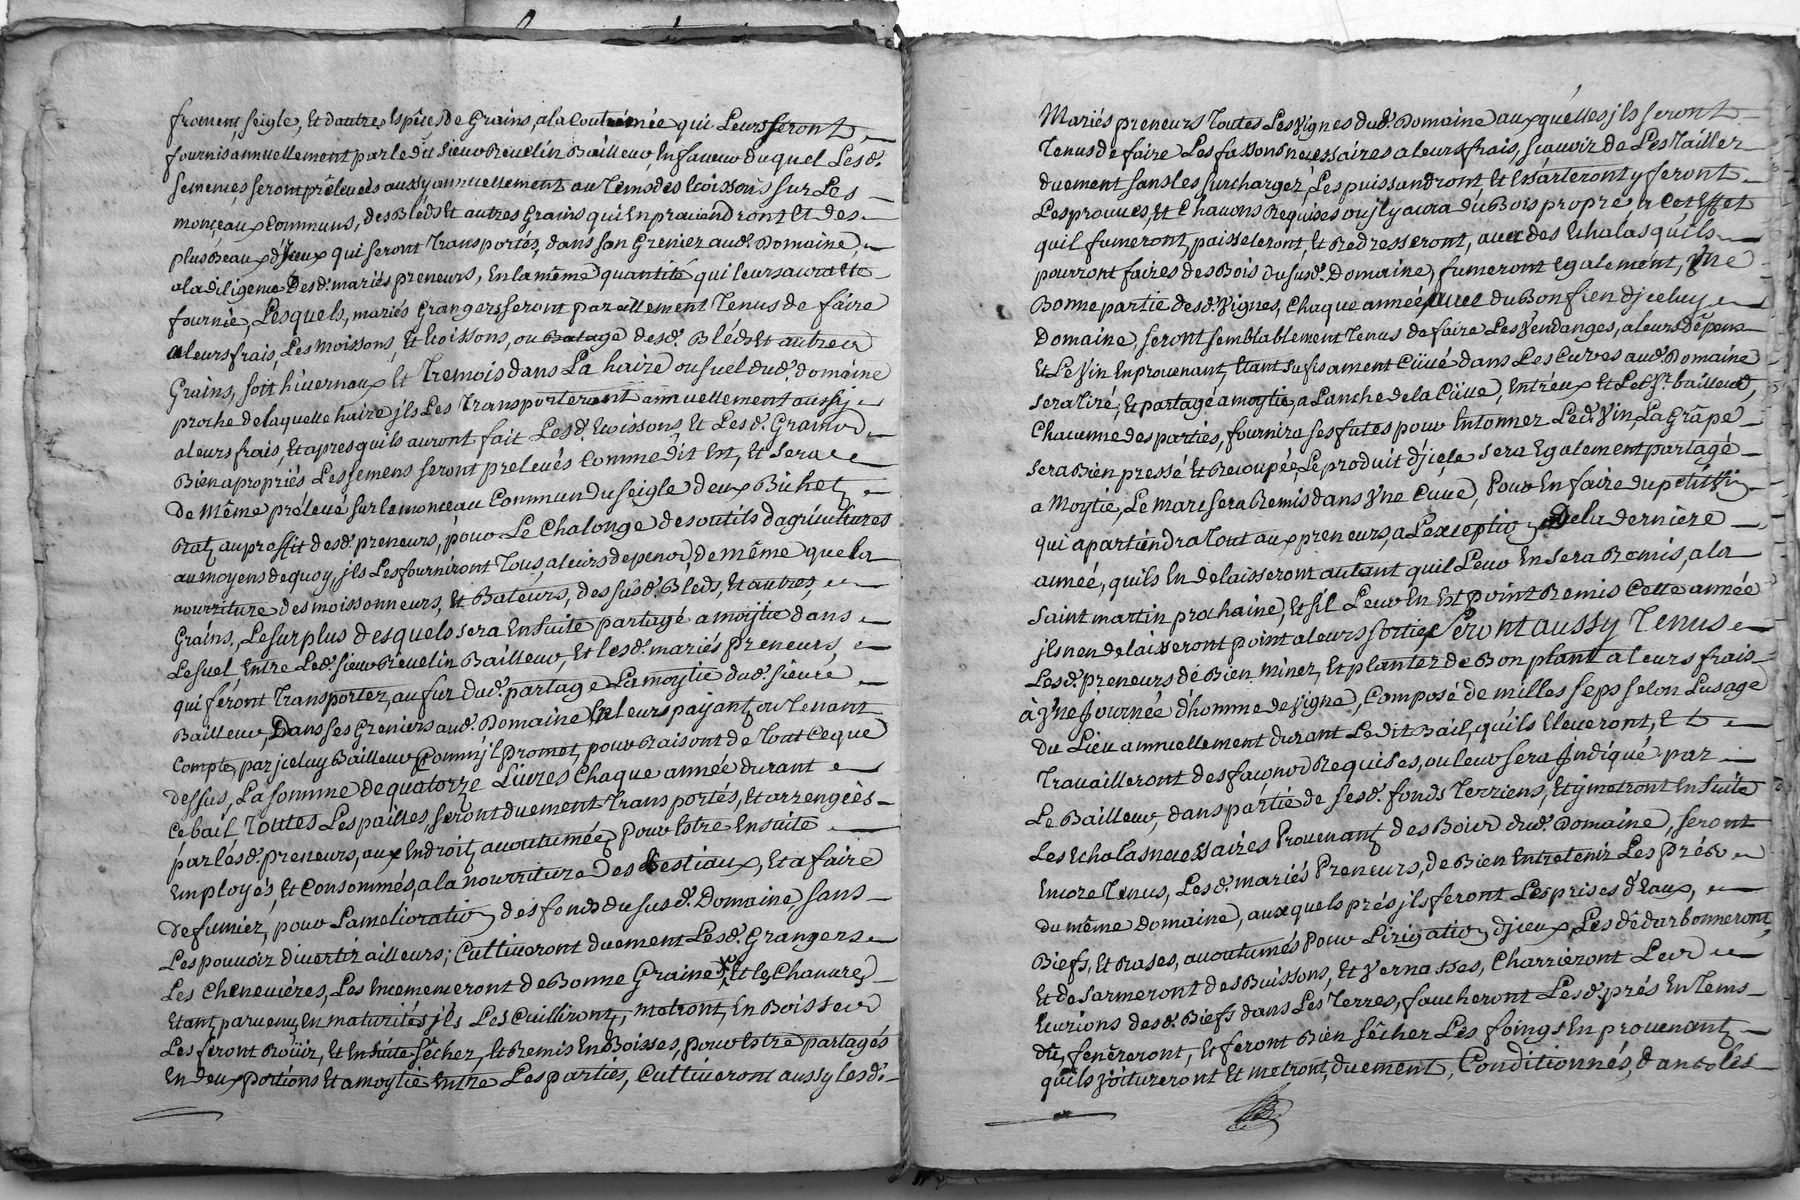 froment, seigle, Et dautres Espèces de Grains, ala Coutumée qui Leurs seront
fournis annuellement par le dit Sieur Revelin Bailleur En faveur duquel Les d.
semences seront prélevées aussy annuellement au Tems des Ecoissons sur Les
monçeaux Communs, des Bleds Et autres Grains qui En proviendront Et des
plus Beaux d'Jceux qui seront Transportés, dans son Grenier aud. Domaine
ala diligence Desd. mariés preneurs, En la même quantité qui leurs aura Eté
fournie, Lesquels, mariés Grangers seront pareillement Tenus de faire
aleurs frais, Les Moissons, Et Ecoissons, ou Batage desd. Bléds Et autres
Grains, soit hivernaux Et Tremois dans La haire ou suel dud. domaine
proche de laquelle haire jls Les Transporteront annuellement aussy
aleurs frais, Et apres quils auront fait Lesd. Ecoissons, Et Lesd. Grains
Bien apropriés Les semens seront prelevés Comme dit Est, Et sera
De même prélevé sur le monceau Commun du seigle deux Bichet
Raz au proffit desd. preneurs, pour Le Chalonge des outils dagricultures
au moyens de quoy, jls Les fourniront Tous, aleurs depens, de même que la
nourriture des moissonneurs, Et Bateurs, des susd. Bleds, Et autres,
Grains, Le surplus desquels sera Ensuite partagé a moytie dans
Le suel, Entre Led. sieur Revelin Bailleur, Et lesd. mariés Preneurs,
qui feront Transporter, au fur dud. partage La moytie dud. sieur
Bailleur, Dans ses Greniers aud. Domaine En leurs payant, ou Tenant
Compte, par jceluy Bailleur Comm jl promet, pour Raisont de Tout Ceque
dessus, La somme de quatorze Livres Chaque année durant
Ce bail, Toutes Les pailles, seront duement Transportés, Et arrengées
par lesd. preneurs, aux Endroit, acoutumée, pour Estre Ensuite
Employés, Et Consommés, ala nourriture Des Bestiaux, Et a faire
De fumier, pour Lamelioration des fonds du susd. Domaine, sans
Les pouvoir divertir ailleurs; Cultiveront duement Lesd. Grangers
Les Chenevières, Les Encemenceront de Bonne Graine, Et le Chanvre,
Etant parvenu En maturités jls Les Cuilliront, metront, En Boisseur
Les feront Roüir, Et Ensuite sêcher, Et Remis En Boisses, pour Estre partagés
En deux portions Et a moytie Entre Les parties, Cultiveront aussy lesd.
Mariés preneurs Toutes Les Vignes dud. Domaine aux quelles jls seront
Tenus de faire Les fassons necessaires aleurs frais, scavoir de Les Tailler
duement sans les surcharger, Les puissandront, Et Essarteront y feront
Les prouves, Et Chavons Requises ou jl y aura du Bois propre a Cet Effet
quil fumeront, paisseleront, Et Redresseront, avec des Echalas quils
pourront faires des Bois du susd. Domaine, fumeront Egalement, Vne
Bonne partie desd. Vignes, Chaque année, avec du Bon fien djceluy
Domaine, seront semblablement Tenus de faire Les Vendanges, aleurs dépens
Et Le Vin En provenant, Etant sufisament Cüvé dans Les Cuves aud. Domaine
sera Tiré, Et partagé a moytie, a Lanche de la Cüve, Entreux Et Led. sr. bailleur,
Chacunne des parties, fournira ses futes pour Entonner Led. Vin, La Grape
sera Bien pressé Et Recoupée, Le produit djcele sera Egalement partagé
a Moytie, Le Marc sera Remis dans Vne Cuve, Pour En faire du petit Vin
qui apartiendra Tout aux preneurs, a Lexception De la derniere
année, quils En delaisseront autant quil Leur En sera Remis, a la
saint martin prochaine, Et sil Leur En Est point Remis Cette année
jls n en delaisseront point a leurs sortie, Seront aussy Tenus
Lesd. preneurs de Bien Miner, Et planter de Bon plant a leurs frais
à Vne Journée dhomme de Vigne, Composé de milles seps selon Lusage
du Lieu annuellement durant Ledit Bail, quils Eleveront, Et
Travailleront des façons Requises, ou leur sera Jndiqué par
Le Bailleur, dans partie de sesd. fonds Terriens, Et y metront Ensuite
Les Echalas necessaires Provenant, des Bois dud. Domaine, seront
Encore Tenus, Lesd. mariés Preneurs, de Bien Entretenir Les Prés
du même domaine, aux quels prés jls feront Les prises d'Eaux,
Biefs, Et Rases, acoutumés Pour Lirigation djceux, Les dédarbonneront,
Et desarmeront des Buissons, Et Vernasses, Charrieront Les
Ecurions desd. Biefs dans Les Terres, faucheront Lesd. prés En Tems
dû, feneront, Et feront Bien sêcher Les foings En provenant,
quils voitureront Et metront, duement, Conditionnés, dans les